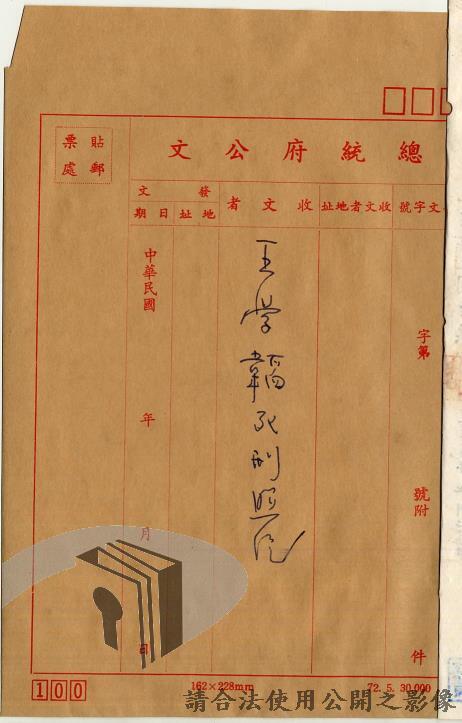 總統府公文
貼郵
票處
文字號
收文者地址
收文者
發文
地址
日期
字第
號附
件
王学死刑照片
中華民國
年
月
日
100
162×228mm
72.5.30,000
請合法使用公開之影像